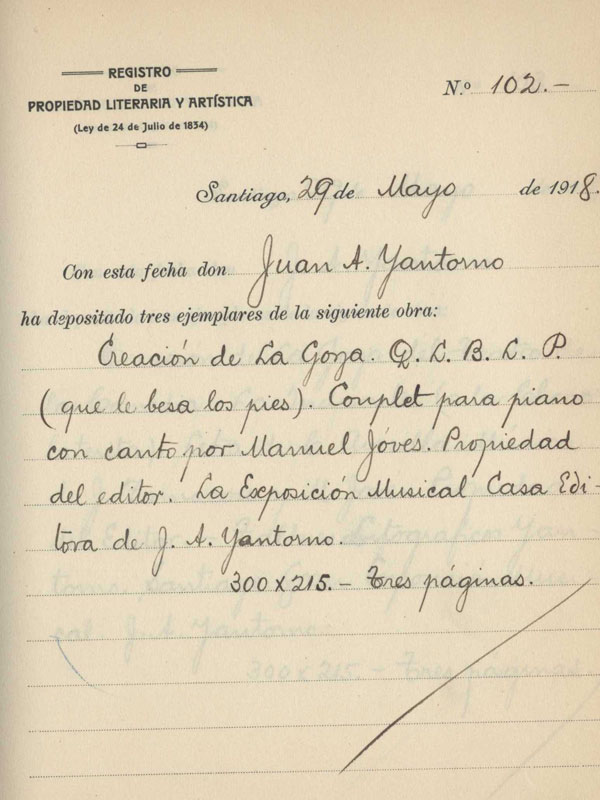 REGISTRO
DE
PROPIEDAD LITERARIA Y ARTÍSTICA
(Ley de 24 de Julio de 1834)
N.º 102.-
Santiago, 29 de Mayo de 1918.
Con esta fecha don Juan A. Yantorno
ha depositado tres ejemplares de la siguiente obra:
Creación de La Goya. Q. L. B. L. P.
(que le besa los pies). Couplet para piano
con canto por Manuel Jóves. Propiedad
del editor. La Exposición Musical Casa Edi-
tora de J. A. Yantorno.
300 x 215.- Tres páginas.